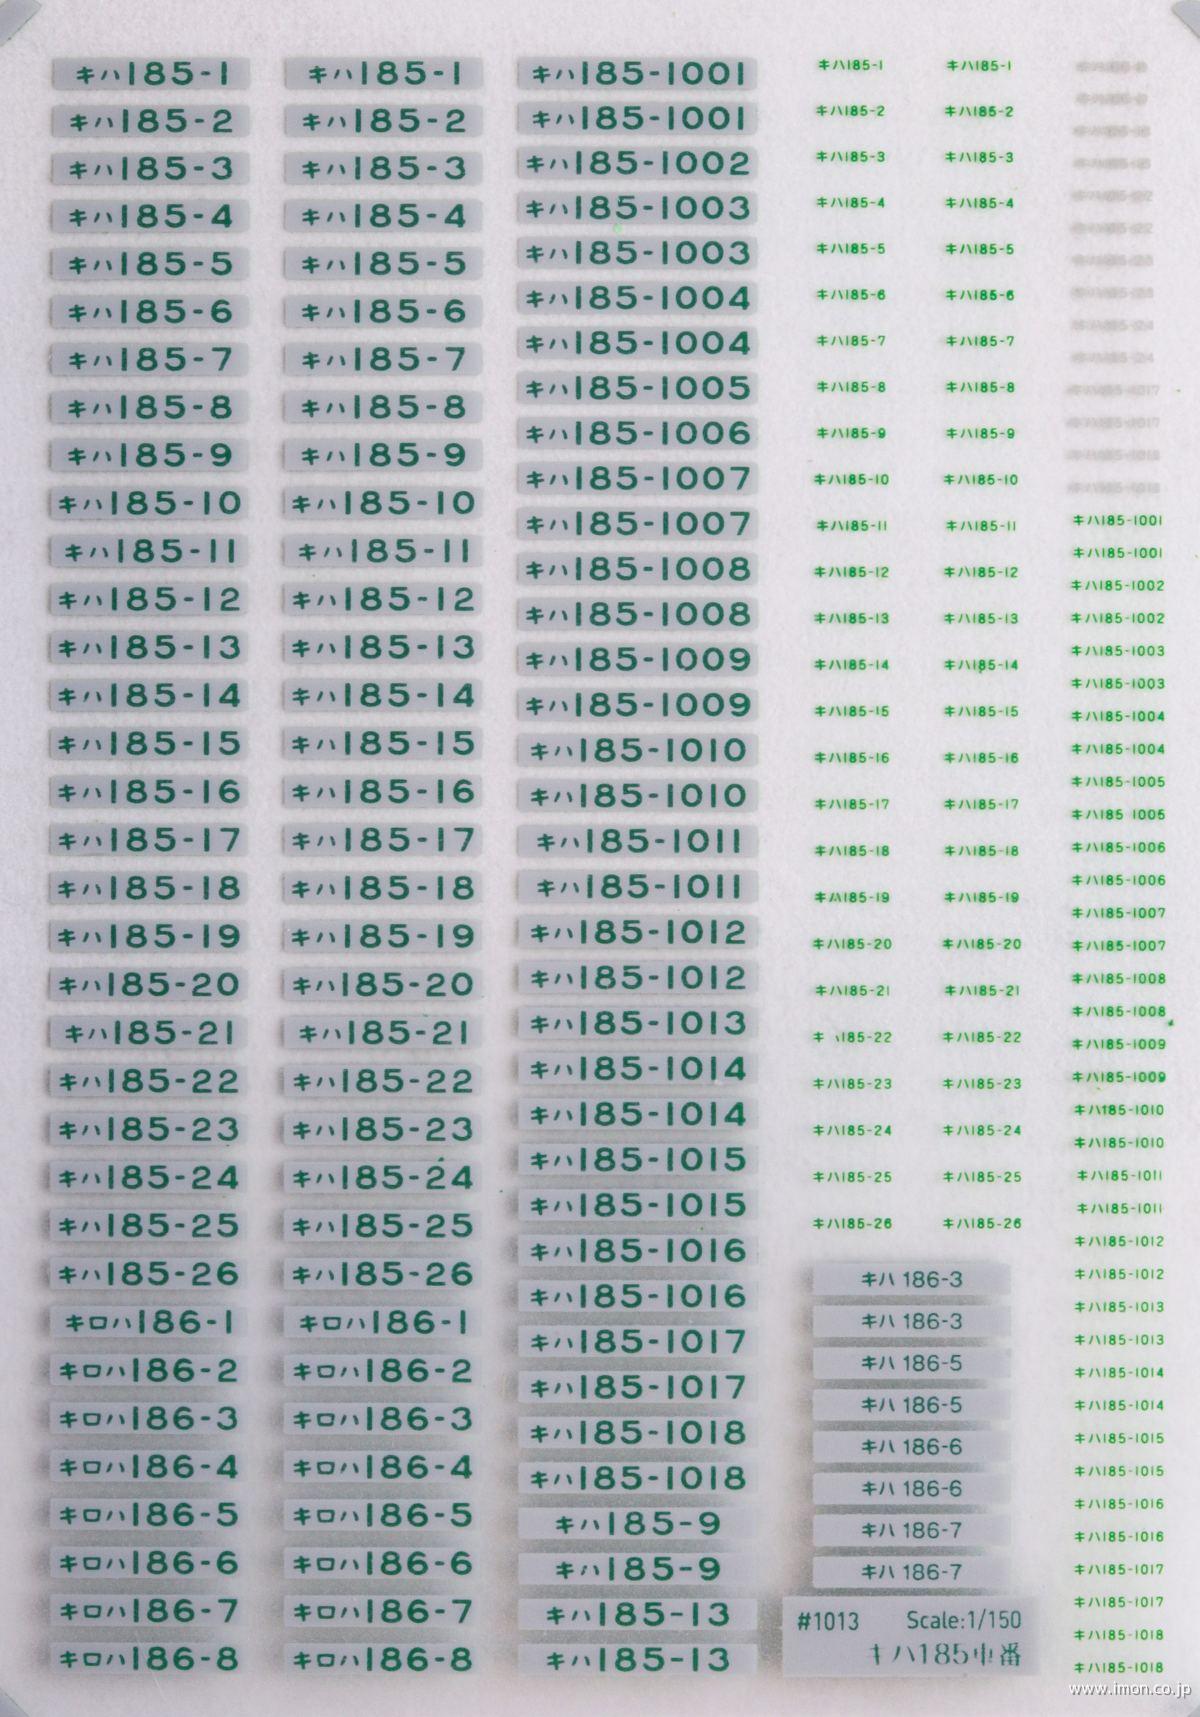 キハ185-1
キハ185-2
キハ185-3
キハ185-4
キハ185-5
キハ185-6
キハ185-7
キハ185-8
キハ185-9
キハ185-10
キハ185-11
キハ185-12
キハ185-13
キハ185-14
キハ185-15
キハ185-16
キハ185-17
キハ185-18
キハ185-19
キハ185-20
キハ185-21
キハ185-22
キハ185-23
キハ185-24
キハ185-25
キハ185-26
キロハ186-1
キロハ186-2
キロハ186-3
キロハ186-4
キロハ186-5
キロハ186-6
キロハ186-7
キロハ186-8
キハ185-1
キハ185-2
キハ185-3
キハ185-4
キハ185-5
キハ185-6
キハ185-7
キハ185-8
キハ185-9
キハ185-10
キハ185-11
キハ185-12
キハ185-13
キハ185-14
キハ185-15
キハ185-16
キハ185-17
キハ185-18
キハ185-19
キハ185-20
キハ185-21
キハ185-22
キハ185-23
キハ185-24
キハ185-25
キハ185-26
キロハ186-1
キロハ186-2
キロハ186-3
キロハ186-4
キロハ186-5
キロハ186-6
キロハ186-7
キロハ186-8
キハ185-1001
キハ185-1001
キハ185-1002
キハ185-1003
キハ185-1003
キハ185-1004
キハ185-1004
キハ185-1005
キハ185-1006
キハ185-1007
キハ185-1007
キハ185-1008
キハ185-1008
キハ185-1009
キハ185-1009
キハ185-1010
キハ185-1010
キハ185-1011
キハ185-1011
キハ185-1012
キハ185-1012
キハ185-1013
キハ185-1014
キハ185-1014
キハ185-1015
キハ185-1015
キハ185-1016
キハ185-1016
キハ185-1017
キハ185-1017
キハ185-1018
キハ185-1018
キハ185-9
キハ185-9
キハ185-13
キハ185-13
キハ185-1
キハ185-2
キハ185-3
キハ185-4
キハ185-5
キハ185-6
キハ185-7
キハ185-8
キハ185-9
キハ185-10
キハ185-11
キハ185-12
キハ185-13
キハ185-14
キハ185-15
キハ185-16
キハ185-17
キハ185-18
キハ185-19
キハ185-20
キハ185-21
キハ185-22
キハ185-23
キハ185-24
キハ185-25
キハ185-26
キハ185-1
キハ185-2
キハ185-3
キハ185-4
キハ185-5
キハ185-6
キハ185-7
キハ185-8
キハ185-9
キハ185-10
キハ185-11
キハ185-12
キハ185-13
キハ185-14
キハ185-15
キハ185-16
キハ185-17
キハ185-18
キハ185-19
キハ185-20
キハ185-21
キハ185-22
キハ185-23
キハ185-24
キハ185-25
キハ185-26
キハ 186-3
キハ 186-3
キハ 186-5
キハ 186-5
キハ 186-6
キハ 186-6
キハ 186-7
キハ 186-7
#1013 Scale:1/150
キハ185車番
キハ185-1001
キハ185-1001
キハ185-1002
キハ185-1002
キハ185-1003
キハ185-1003
キハ185-1004
キハ185-1004
キハ185-1005
キハ185 1005
キハ185-1006
キハ185-1006
キハ185-1007
キハ185-1007
キハ185-1008
キハ185-1008
キハ185-1009
キハ185-1009
キハ185-1010
キハ185-1010
キハ185-1011
キハ185-1011
キハ185-1012
キハ185-1012
キハ185-1013
キハ185-1013
キハ185-1014
キハ185-1014
キハ185-1015
キハ185-1015
キハ185-1016
キハ185-1016
キハ185-1017
キハ185-1017
キハ185-1018
キハ185-1018
www.imon.co.jp